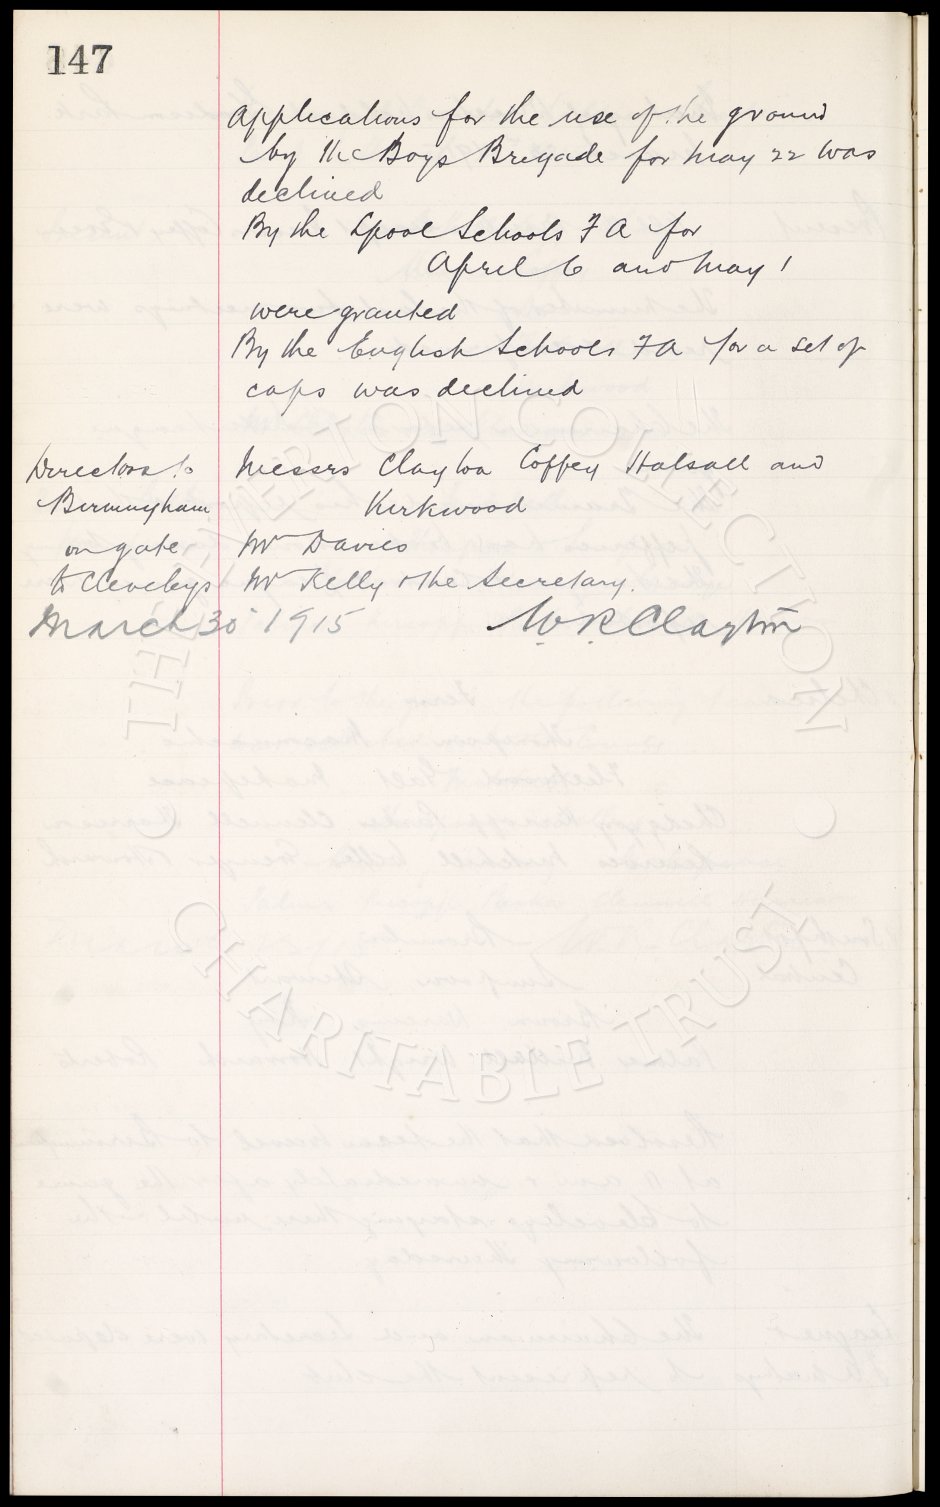 147
Applications for the use of the ground
by the Boys Brigade for May 22 was
declined
By the Lpool Schools F A for
April 6 and May 1
were granted
By the English Schools F A for a set of
caps was declined
Directors to Messrs Clayton Coffey Halsall and
Birmingham Kirkwood
on gate Mr Davies
to Cleveleys Mr Kelly & the Secretary.
March 30 1915 W R Clayton
THE EVERTON COLLECTION
CHARITABLE TRUST